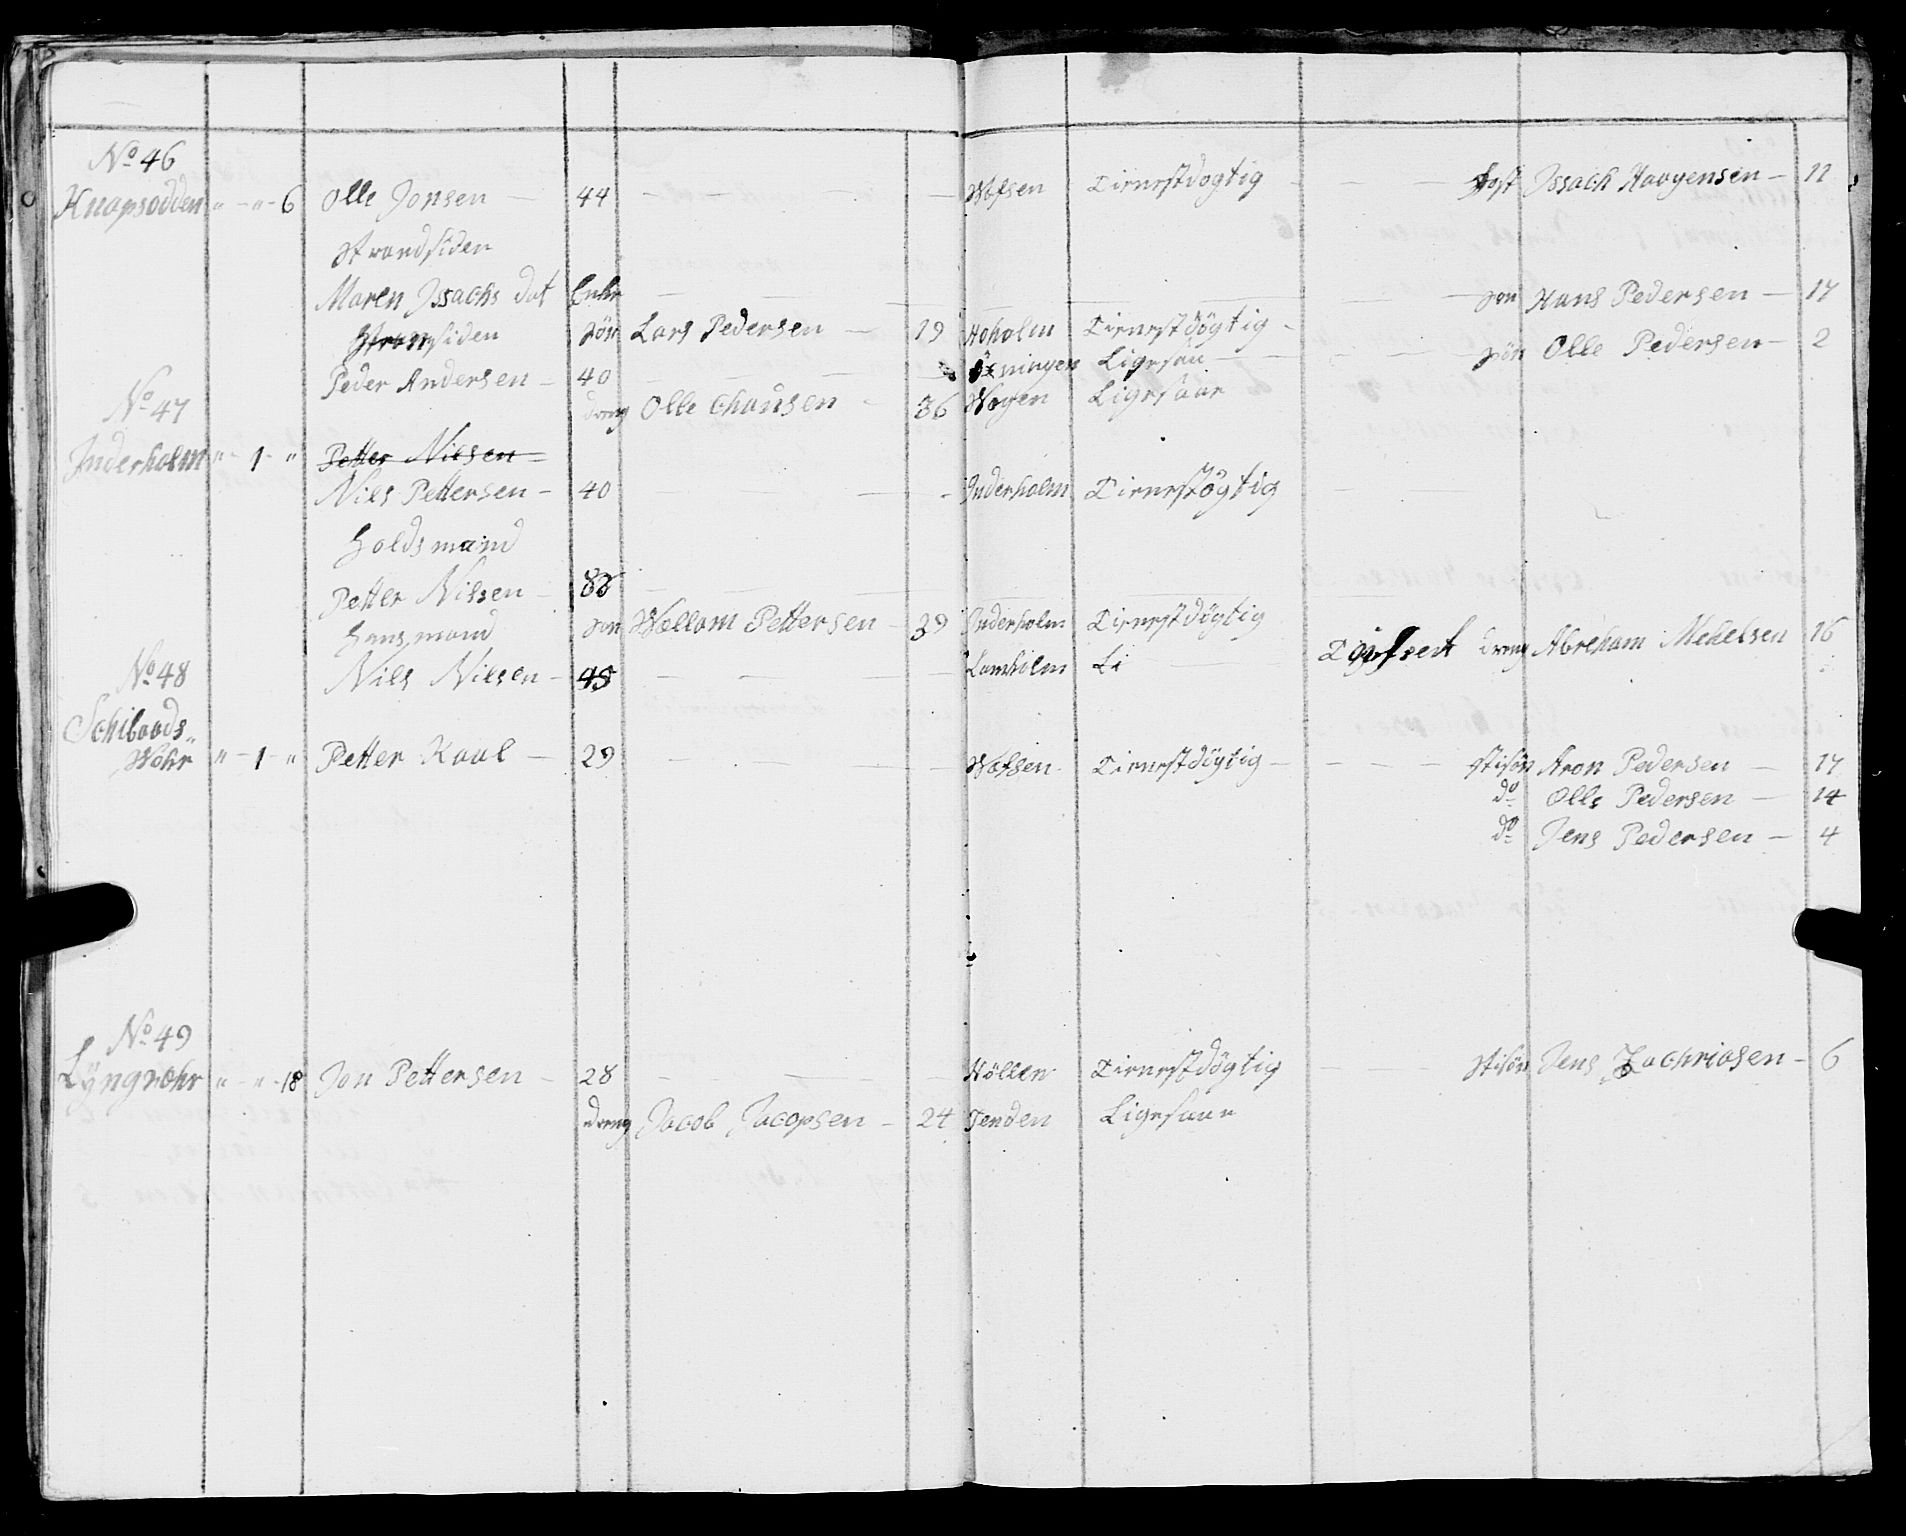 No 46
Knapsodden " - " - 6 Olle Jonsen - 44 - - - - Wefsen Tienestdogtig - - Fost Issach Haagensen - 11
Strandsiden
Maren Issachs dat Enke - - - - - - - søn Hans Pedersen - 17
Strandsiden søn Lars Pedersen - 19 Hoholm Tienestdögtig -
søn Olle Pedersen - 2
Peder Andersen - 40 - - - - Ligesaa - - -
No 47 dreng Olle Chansen - 36 Wogen Ligesaae
Inderholm " - 1 - " Petter Nilsen
Nils Pettersen - 40 - - - - Inderholm Tienestögtig -
Holdsmand
Petter Nilsen - 88 - - - -
Hansmand søn Wellom Pettersen - 39 Inderholm Tienestdögtig
dreng Abreham Mekelsen 16
No 48 Nils Nilsen - 45 - - - Lamholm Li -
Schibaads
Wohr " - 1 - " Petter Kaal - 29 - - - - Wefsen Tienestdögtig - - - - stisön Aron Pedersen - 17
do Olle Pedersen - 14
do Jens Pedersen - 4
No 49
Lÿngwohr " - " - 18 Jon Pettersen - 28 - - - Höllen Tienestdögtig - - stisön Jens Zachriasen - 6
dreng Jacob Jacopsen - 24 Tenden Ligesaae